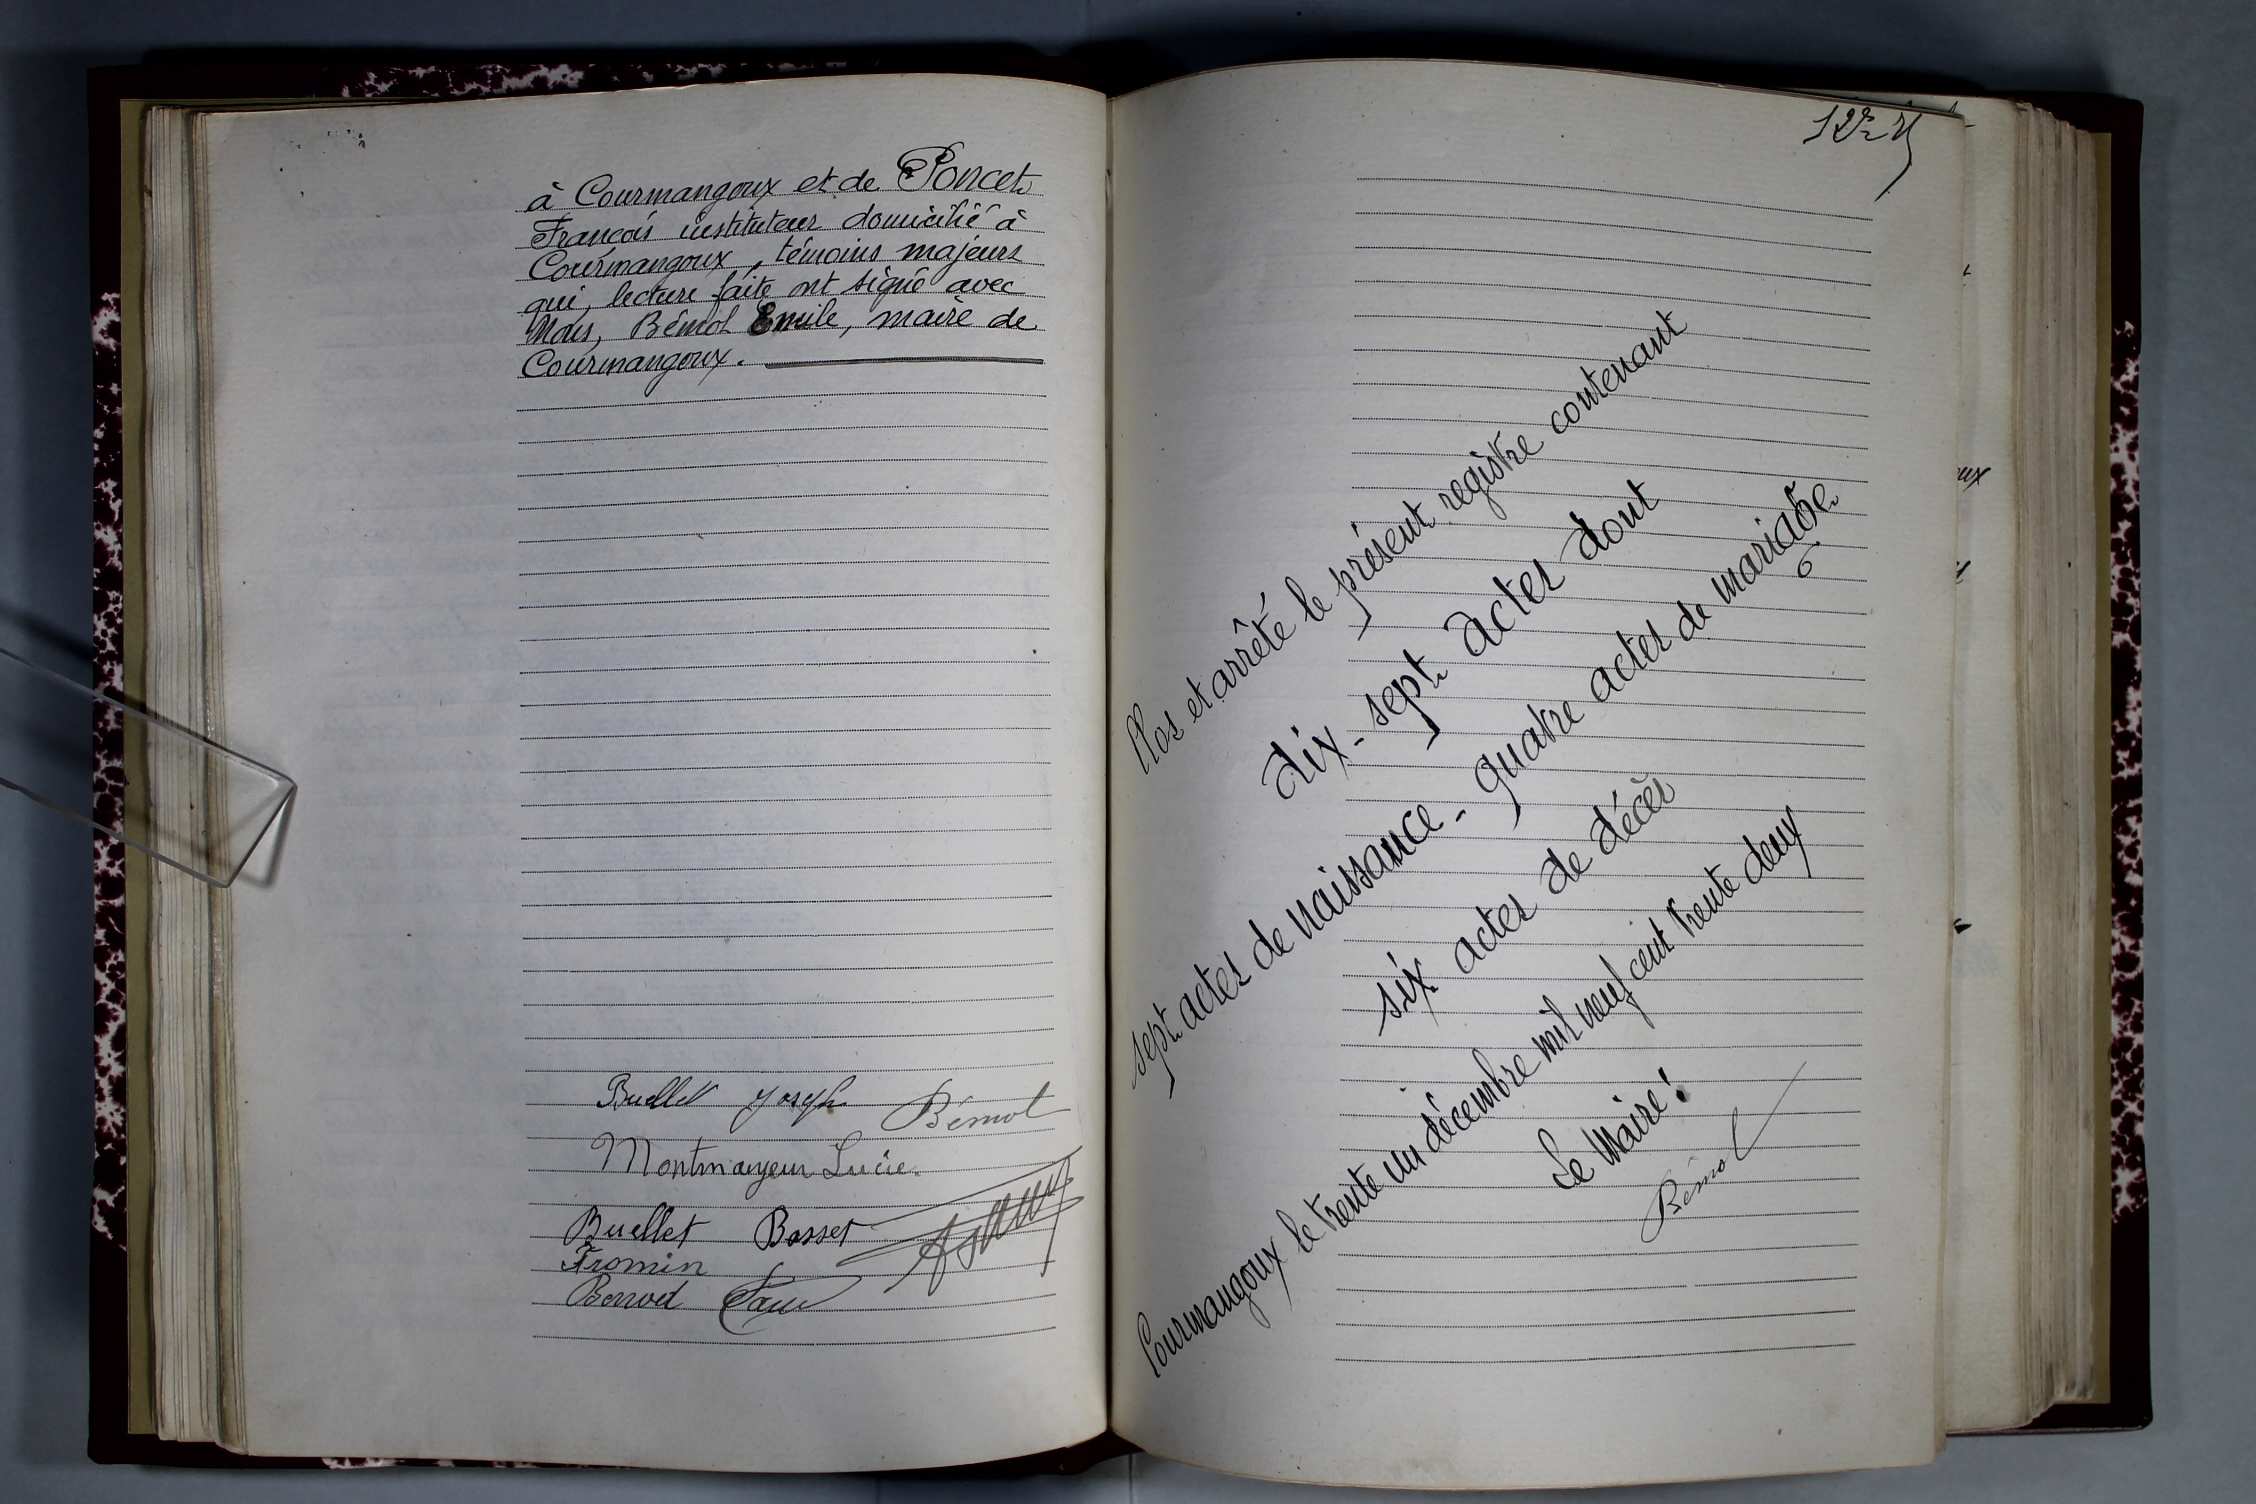 à Courmangoux et de Poncet
François instituteur domicilié à
Courmangoux, témoins majeurs
qui, lecture faite ont signé avec
Nous, Bémol Emile, maire de
Courmangoux.
Buellet Joseph Bémol
Montmayeur Lucie
Buellet Bosset
Fromin
Berrod
Clos et arrêté le présent registre contenant
dix-sept actes dont
sept actes de naissance - quatre actes de mariage
six actes de décès
Courmangoux le trente un décembre mil neuf cent trente deux
Le Maire:
Bémol